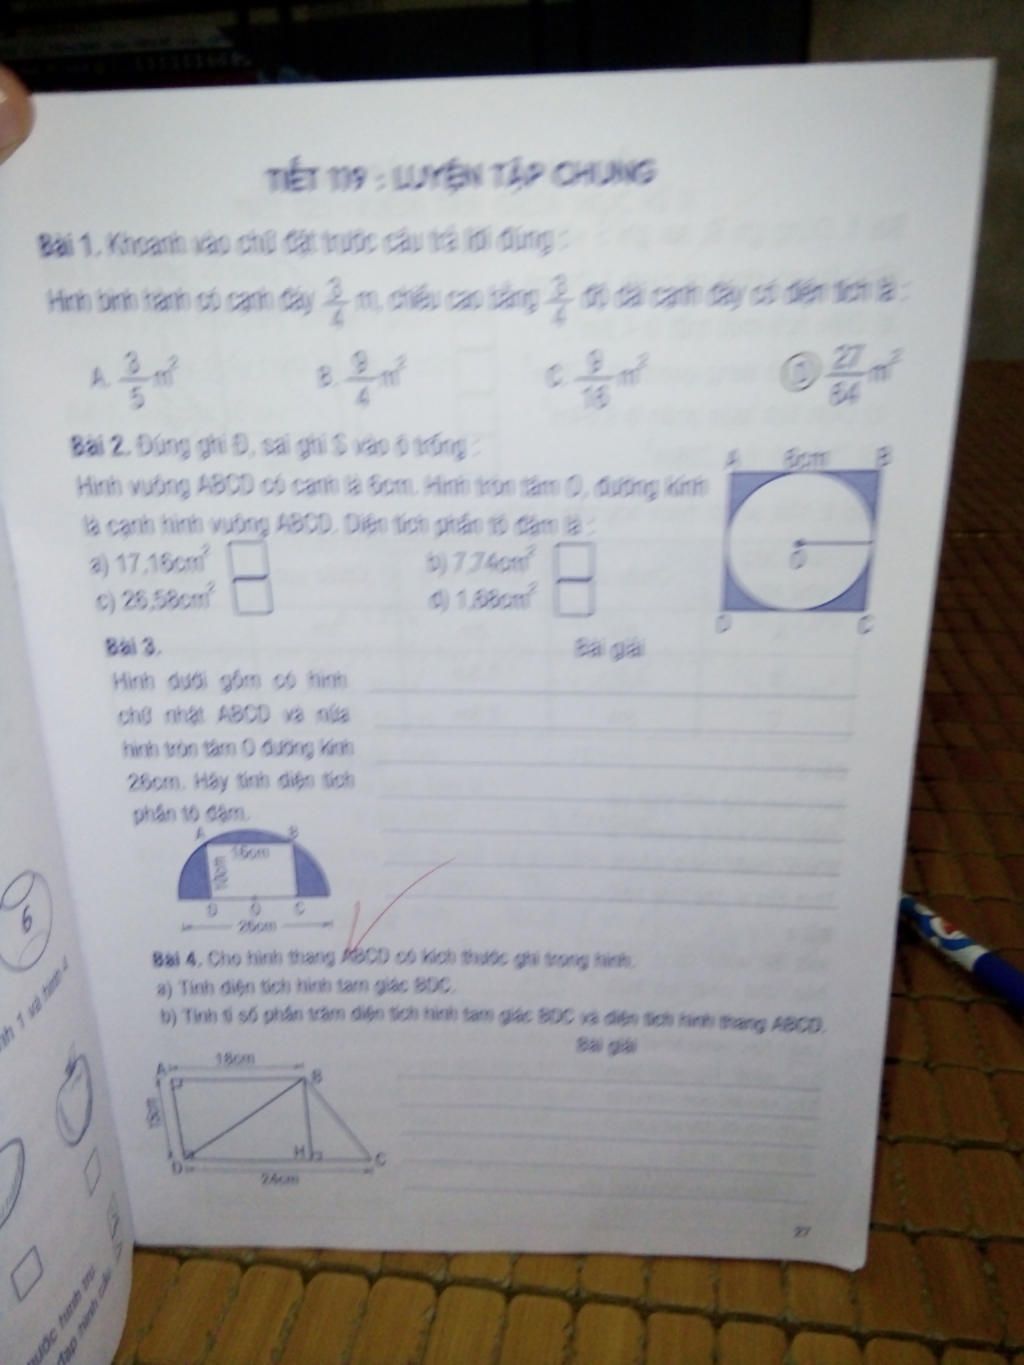 TIẾT 119 : LUYỆN TẬP CHUNG
Bài 1. Khoanh vào chữ đặt trước câu trả lời đúng :
Hình bình hành có cạnh đáy 3/4 m, chiều cao bằng 3/4 độ dài cạnh đáy có diện tích là :
A. 3/5 m² B. 9/4 m² C. 9/16 m² D 27/64 m²
Bài 2. Đúng ghi Đ, sai ghi S vào ô trống :
Hình vuông ABCD có cạnh là 6cm. Hình tròn tâm O, đường kính
là cạnh hình vuông ABCD. Diện tích phần tô đậm là :
a) 17,16cm² b) 7,74cm²
c) 26,58cm² d) 1,68cm²
A 6cm B
O
D C
Bài 3. Bài giải
Hình dưới gồm có hình
chữ nhật ABCD và nửa
hình tròn tâm O đường kính
26cm. Hãy tính diện tích
phần tô đậm.
A B
16cm
10cm
D O C
26cm
Bài 4. Cho hình thang ABCD có kích thước ghi trong hình.
a) Tính diện tích hình tam giác BDC.
b) Tính tỉ số phần trăm diện tích hình tam giác BDC và diện tích hình thang ABCD.
Bài giải
A 18cm B
D H C
24cm
27
6
nh 1 và hình 4